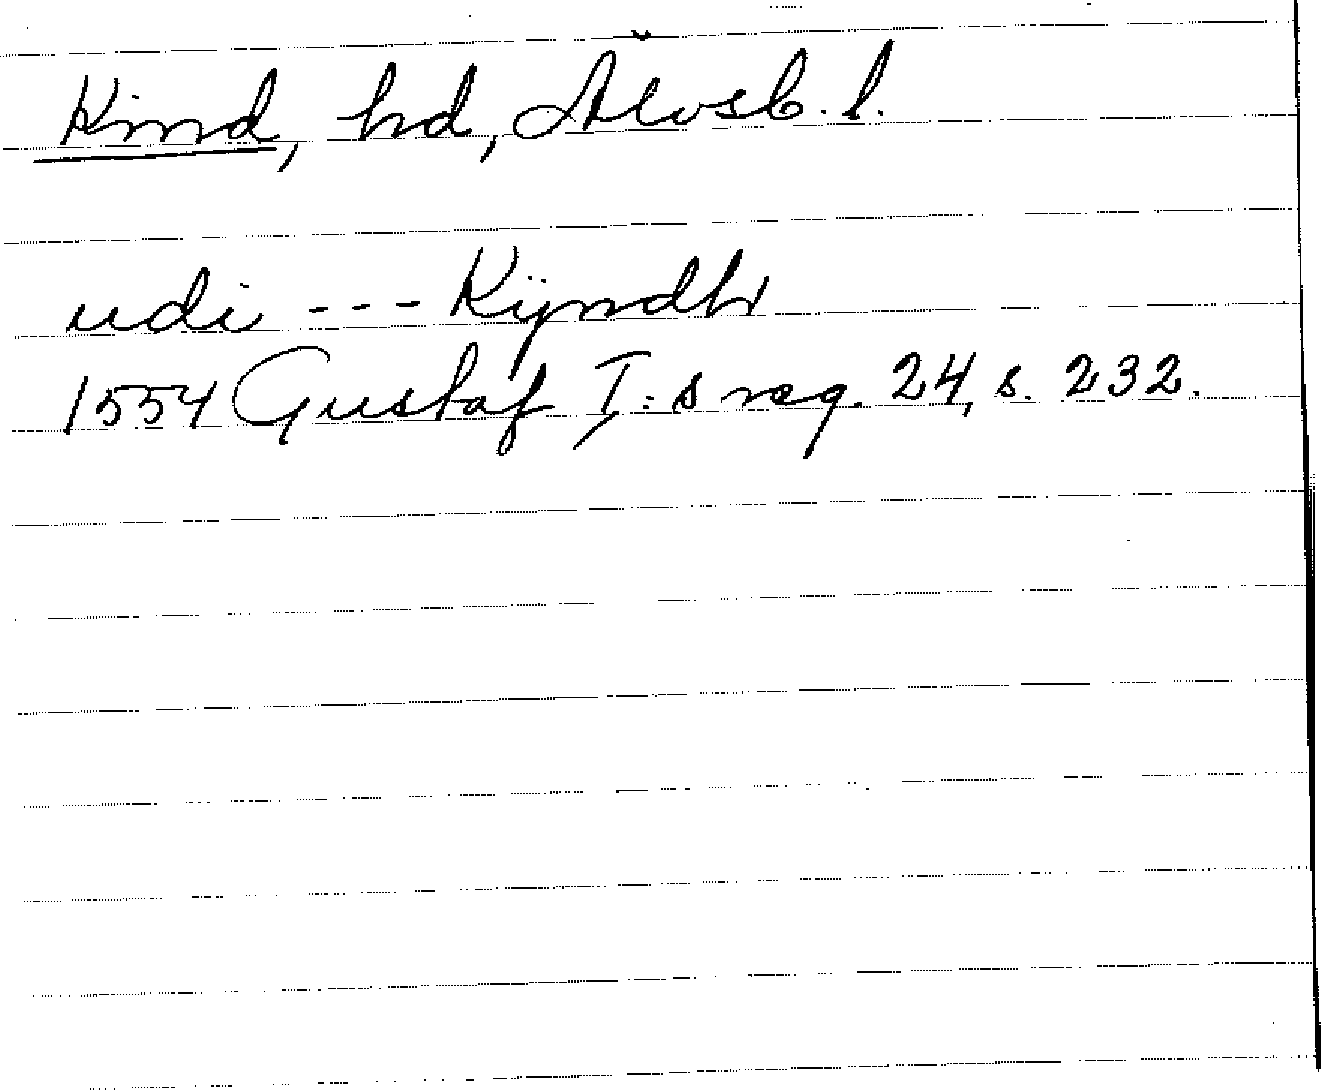 Kind, hd, Älvsb. l.
udi --- Kÿndh
1554 Gustaf I:s reg. 24, s. 232.